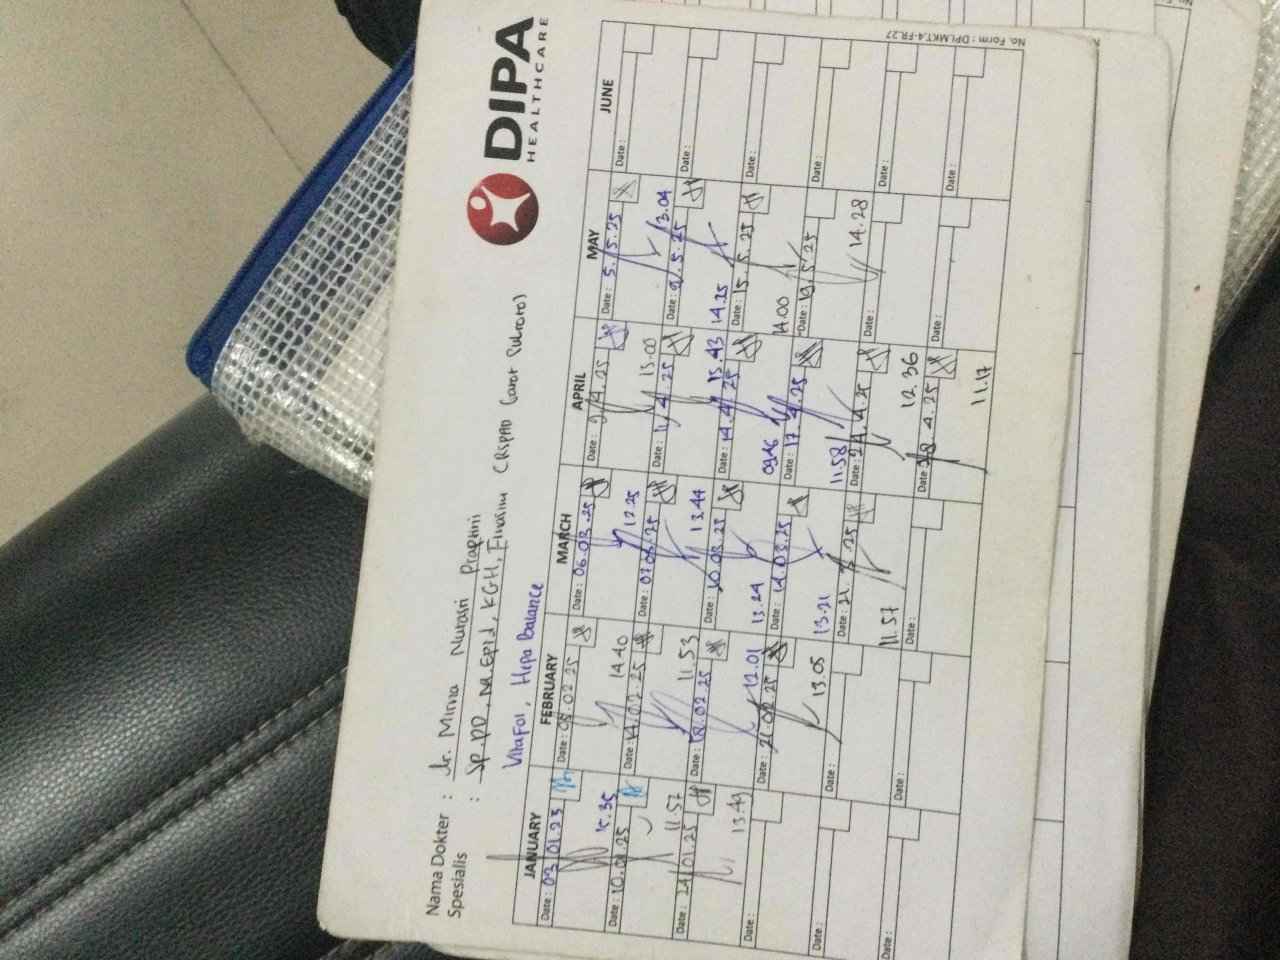 DIPA
HEALTHCARE
Nama Dokter : dr. Mirna Nurasri Praptini
Spesialis : Sp.PD, M.Epid, KGH, FINASIM (RSPAD Gatot Subroto)
VitaFol, Hepa Balance
JANUARY FEBRUARY MARCH APRIL MAY JUNE
Date: 03.01.25 Date: 05.02.25 Date: 06.03.25 Date: 9.4.25 Date: 5.5.25 Date:
15.35 14.40 12.25 15.00 13.04
Date: 10.01.25 Date: 14.02.25 Date: 07.03.25 Date: 11.4.25 Date: 9.5.25 Date:
11.57 11.53 13.44 15.43 14.25
Date: 24.01.25 Date: 18.02.25 Date: 10.03.25 Date: 14.4.25 Date: 15.5.25 Date:
13.49 12.01 13.24 09.46 14.00
Date: Date: 21.02.25 Date: 14.03.25 Date: 17.4.25 Date: 19.5.25 Date:
13.05 13.21 11.58 14.28
Date: Date: Date: 21.3.25 Date: 24.4.25 Date: Date:
11.57 12.36
Date: Date: Date: Date: 28.4.25 Date: Date:
11.17
No. Form : DPI.MKT.4-FR.27